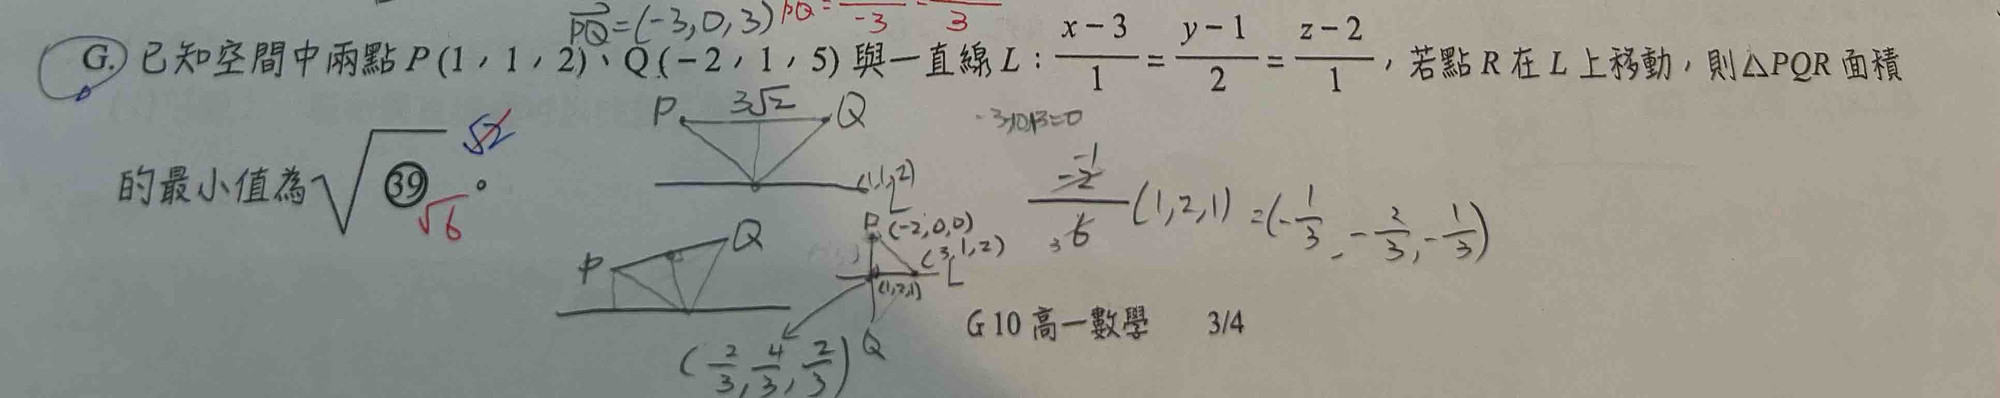 PQ=(-3,0,3) PQ= -3 3
G. 已知空間中兩點 P(1，1，2)、Q(-2，1，5) 與一直線 L：x-3/1=y-1/2=z-2/1，若點 R 在 L 上移動，則△PQR 面積
P 3√2 Q
-3+0+3=0
的最小值為√㊴。
√2
√6
(1,1,2)
L
-2/6 -1 3 (1,2,1) =(-1/3, -2/3, -1/3)
P Q
P (-2,0,0)
(3,1,2)
(1,2,1) L
Q
(2/3, 4/3, 2/3)
G 10 高一數學 3/4